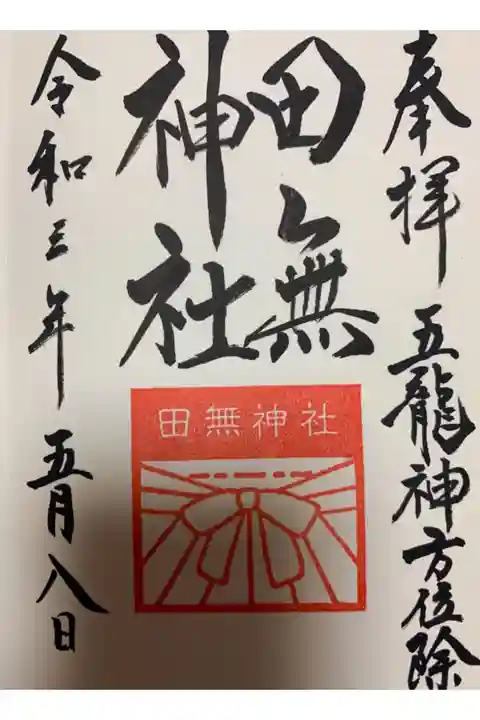 奉拝 五龍神方位除
田無
神社
田無神社
令和三年五月八日